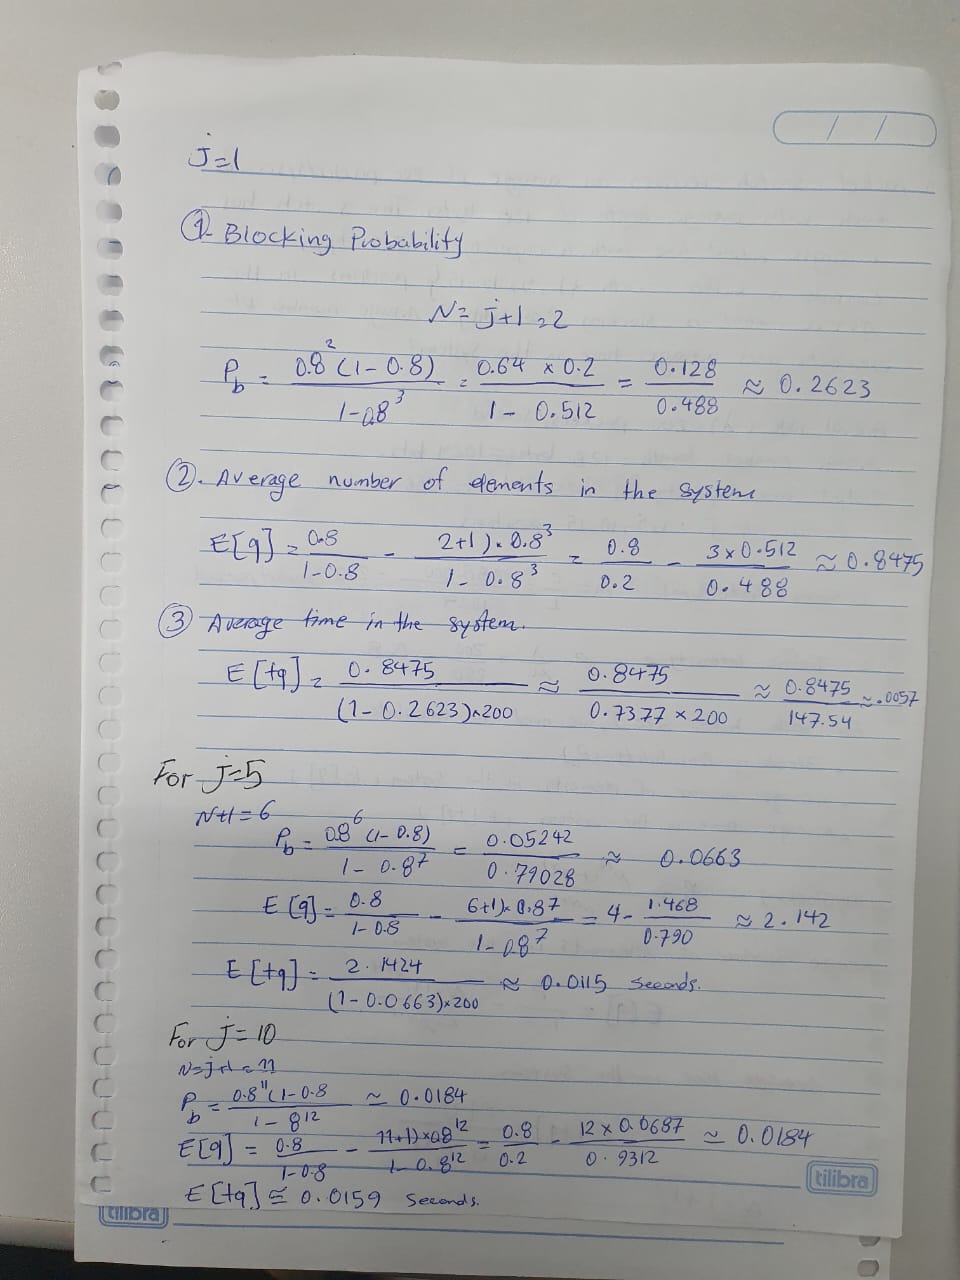 J=1
① Blocking Probability
N= j+1 = 2
P_b = 0.8^2 (1-0.8) / 1-0.8^3 = 0.64 x 0.2 / 1 - 0.512 = 0.128 / 0.488 ≈ 0.2623
②. Average number of elements in the system
E[q] = 0.8 / 1-0.8 - 2+1).0.8^3 / 1-0.8^3 = 0.8 / 0.2 - 3x0.512 / 0.488 ≈ 0.8475
③ Average time in the system.
E[tq] = 0.8475 / (1-0.2623)x200 ≈ 0.8475 / 0.7377 x 200 ≈ 0.8475 / 147.54 ≈ .0057
For J=5
N+1 = 6
P_b = 0.8^6 (1-0.8) / 1-0.8^7 = 0.05242 / 0.79028 ≈ 0.0663
E[q] = 0.8 / 1-0.8 - 6+1)x0.8^7 / 1-0.8^7 = 4 - 1.468 / 0.790 ≈ 2.142
E[tq] = 2.1424 / (1-0.0663)x200 ≈ 0.0115 seconds.
For J=10
N=j+1 = 11
P_b = 0.8^11 (1-0.8 / 1-8^12 ≈ 0.0184
E[q] = 0.8 / 1-0.8 - 11+1)x0.8^12 / 1-0.8^12 = 0.8 / 0.2 - 12 x 0.0687 / 0.9312 ≈ 0.0184
E[tq] ≅ 0.0159 seconds.
tilibra
tilibra